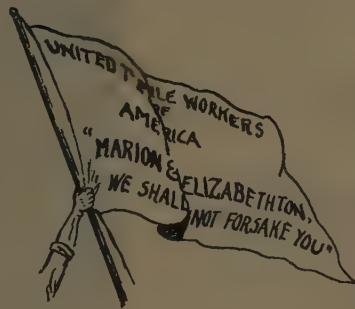 UNITED WORKERS
OF
AMERICA
"MARION & ELIZABETHTON,
WE SHALL NOT FORSAKE YOU"